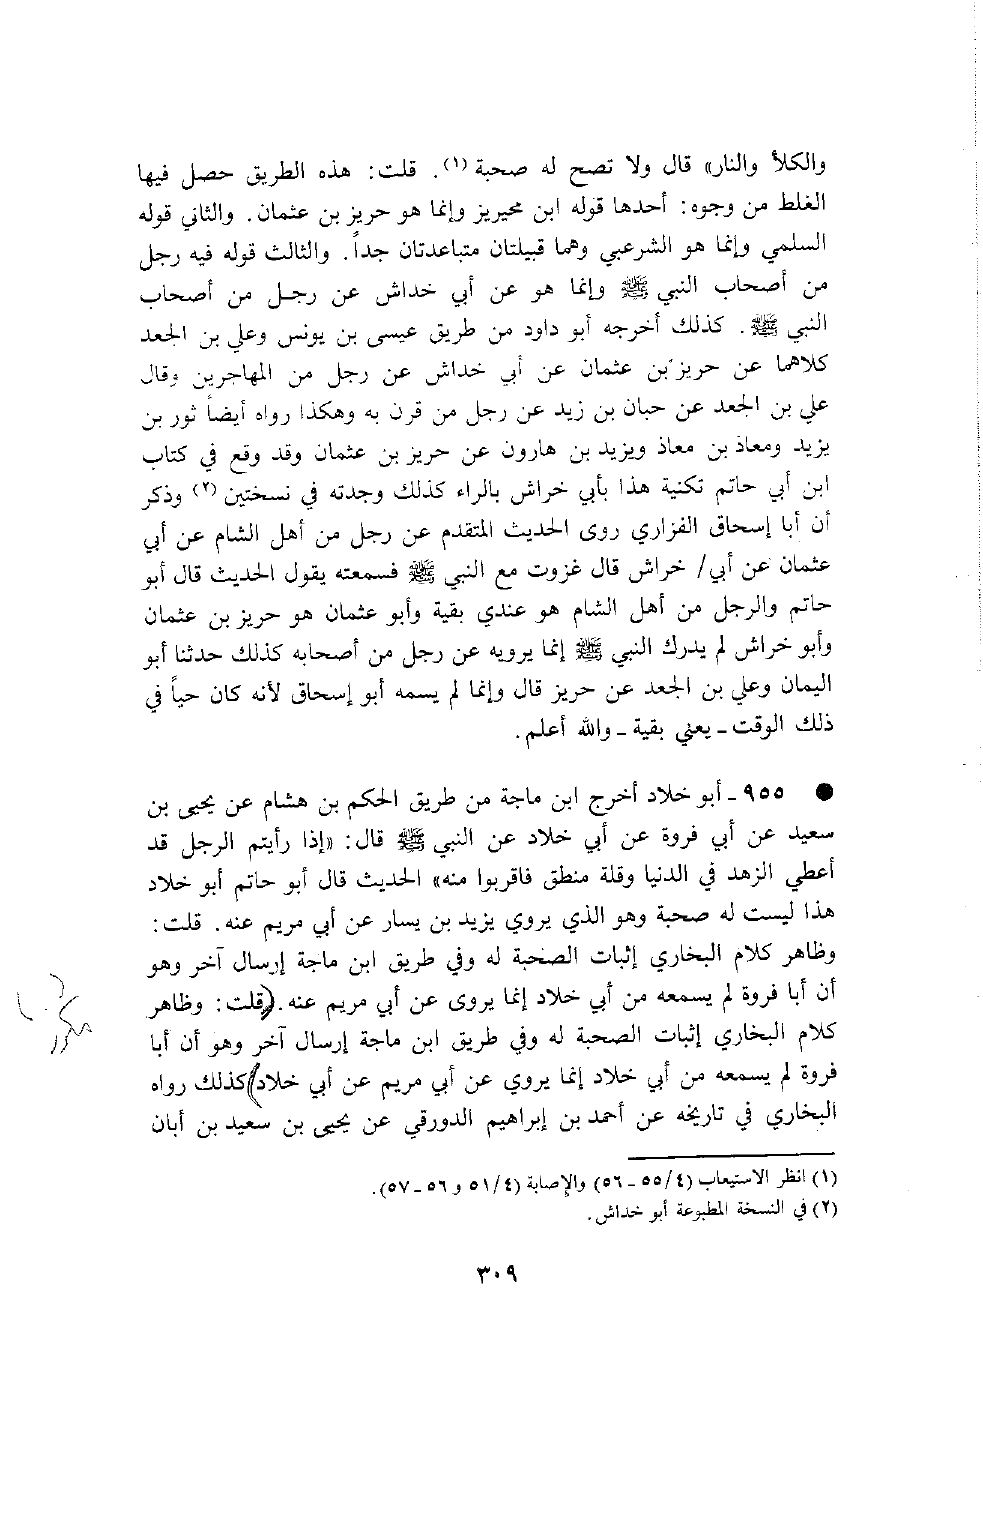 والكلأ والنار» قال ولا تصح له صحبة (١). قلت: هذه الطريق حصل فيها
الغلط من وجوه: أحدها قوله ابن محيريز وإنما هو حريز بن عثمان. والثاني قوله
السلمي وإنما هو الشرعبي وهما قبيلتان متباعدتان جداً. والثالث قوله فيه رجل
من أصحاب النبي ﷺ وإنما هو عن أبي خداش عن رجل من أصحاب
النبي ﷺ. كذلك أخرجه أبو داود من طريق عيسى بن يونس وعلي بن الجعد
كلاهما عن حريز بن عثمان عن أبي خداش عن رجل من المهاجرين وقال
علي بن الجعد عن حبان بن زيد عن رجل من قرن به وهكذا رواه أيضاً ثور بن
يزيد ومعاذ بن معاذ ويزيد بن هارون عن حريز بن عثمان وقد وقع في كتاب
ابن أبي حاتم تكنية هذا بأبي خراش بالراء كذلك وجدته في نسختين (٢) وذكر
أن أبا إسحاق الفزاري روى الحديث المتقدم عن رجل من أهل الشام عن أبي
عثمان عن أبي/ خراش قال غزوت مع النبي ﷺ فسمعته يقول الحديث قال أبو
حاتم والرجل من أهل الشام هو عندي بقية وأبو عثمان هو حريز بن عثمان
وأبو خراش لم يدرك النبي ﷺ إنما يرويه عن رجل من أصحابه كذلك حدثنا أبو
اليمان وعلي بن الجعد عن حريز قال وإنما لم يسمه أبو إسحاق لأنه كان حياً في
ذلك الوقت ـ يعني بقية ـ والله أعلم.
● ٩٥٥ ـ أبو خلاد أخرج ابن ماجة من طريق الحكم بن هشام عن يحيى بن
سعيد عن أبي فروة عن أبي خلاد عن النبي ﷺ قال: «إذا رأيتم الرجل قد
أعطي الزهد في الدنيا وقلة منطق فاقربوا منه» الحديث قال أبو حاتم أبو خلاد
هذا ليست له صحبة وهو الذي يروي يزيد بن يسار عن أبي مريم عنه. قلت:
وظاهر كلام البخاري إثبات الصحبة له وفي طريق ابن ماجة إرسال آخر وهو
أن أبا فروة لم يسمعه من أبي خلاد إنما يروى عن أبي مريم عنه. (قلت: وظاهر
كلام البخاري إثبات الصحبة له وفي طريق ابن ماجة إرسال آخر وهو أن أبا
فروة لم يسمعه من أبي خلاد إنما يروي عن أبي مريم عن أبي خلاد) كذلك رواه
البخاري في تاريخه عن أحمد بن إبراهيم الدورقي عن يحيى بن سعيد بن أبان
(١) انظر الاستيعاب (٤/ ٥٥ ـ ٥٦) والإصابة (٤/ ٥١ و ٥٦ ـ ٥٧).
(٢) في النسخة المطبوعة أبو خداش.
٣٠٩